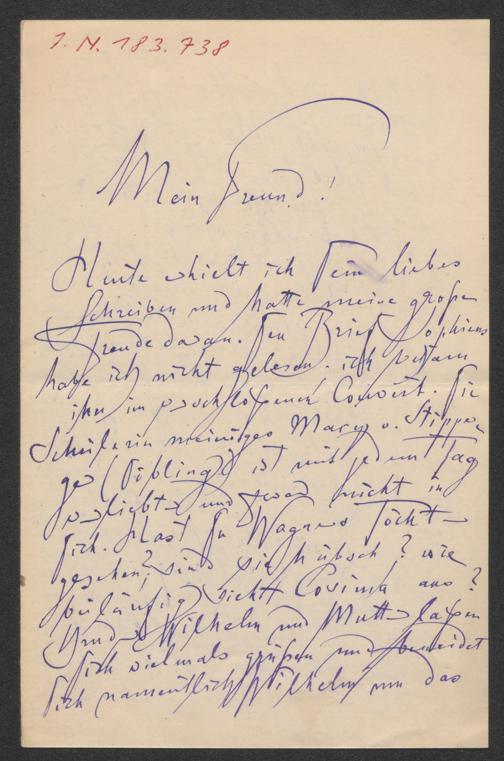 I. N. 183.738
Mein Freund!
Heute erhielt ich Dein liebes
Schreiben und hatte meine große
Freude daran. Den Brief Sophiens
habe ich nicht gelesen. ich bekam
ihn im verschloßenen Couvert. Die
Schülerin Mary v.
(Liebling) ist mit jedem Tag
verliebter und zwar nicht in
Dich. Hast Du Wagners Töchter
gesehen? sind sie hübsch? wie
beiläufig sieht Cosima aus?
Bruder Wilhelm und Mutter laßen
Dich vielmals grüßen und beneidet
Dich namentlich Wilhelm um das